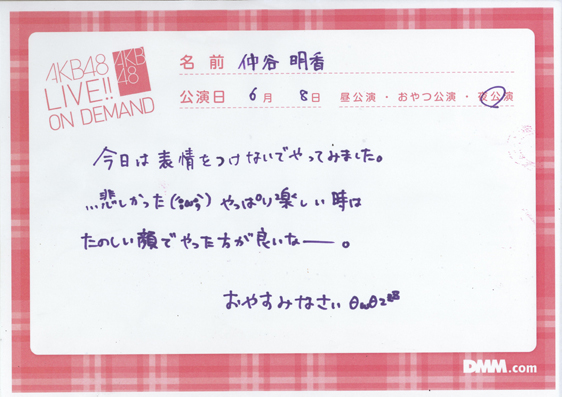 AKB48
LIVE!!
ON DEMAND
AKB
48
名 前 仲谷 明香
公演日 6月 8日 昼公演・おやつ公演・夜公演
今日は表情をつけないでやってみました。
...悲しかった( ) やっぱり楽しい時は
たのしい顔でやった方が良いなー。
おやすみなさい
DMM.com